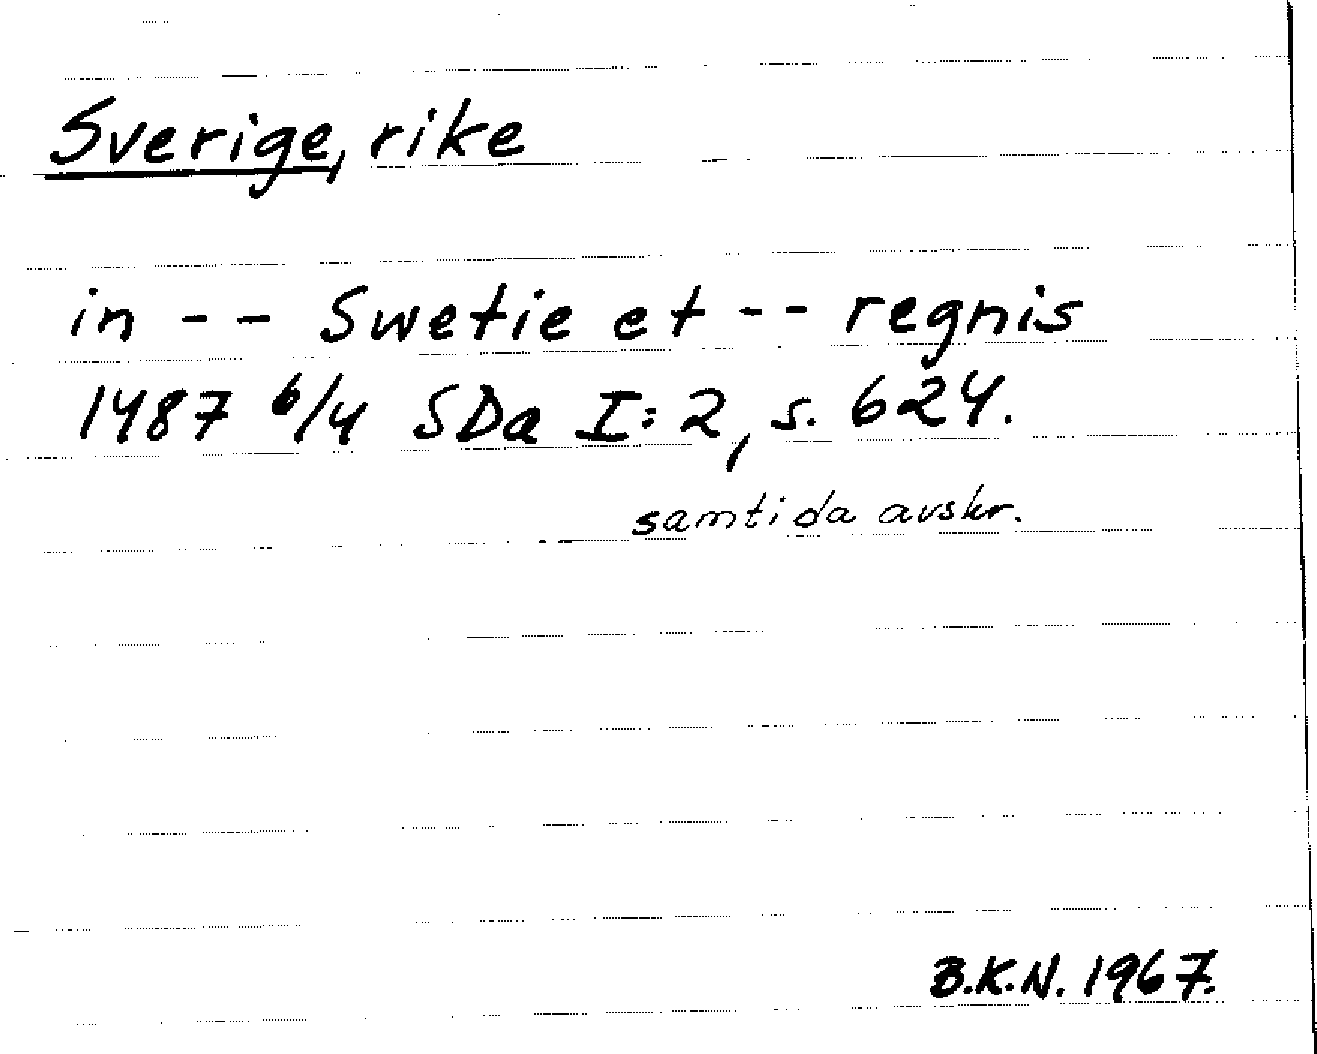 Sverige, rike
in - - Swetie et - - regnis
1487 6/4 SDa I:2, s. 624.
samtida avskr.
B.K.N. 1967.